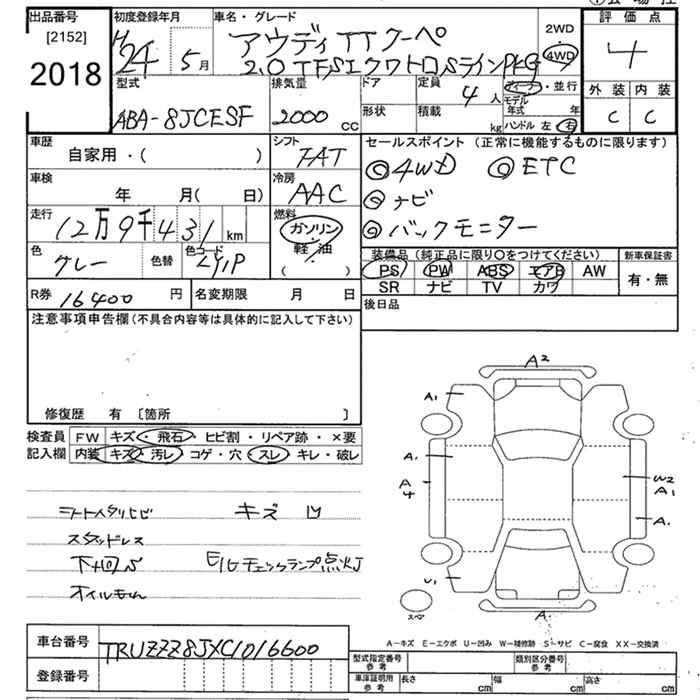 出品番号
[2152]
2018
初度登録年月
H24 5月
車名・グレード
アウディ TT クーペ
2.0 TFSIクワトロSラインPKG
2WD
4WD
評価点
4
型式
ABA-8JCESF
排気量
2000 cc
ドア
形状
定員
4 人
積載
kg
ディーラー・並行
モデル年式 年
ハンドル 左 右
外装 内装
C C
車歴
自家用・( )
シフト
7AT
セールスポイント (正常に機能するものに限ります)
◎4WD ◎ETC
◎ナビ
◎バックモニター
車検
年 月( 日)
冷房
AAC
走行
12万9千431km
燃料
ガソリン
軽油
( )
色
グレー
色替
色コード
装備品 (純正品に限り○をつけてください)
PS PW ABS エアB AW
SR ナビ TV カワ
新車保証書
有・無
R券 16400 円
名変期限 月 日
後日品
注意事項申告欄(不具合内容等は具体的に記入して下さい)
修復歴 有 [箇所 ]
検査員
記入欄
FW キズ・飛石・ヒビ割・リペア跡・×要
内装 キズ・汚レ・コゲ・穴・スレ・キレ・破レ
キズ 凹
スタッドレス
下廻りS
E/Gチェックランプ点灯
A2
A1
A1
A4
W2
A1
A1
U1
スペア
A
A-キズ E-エクボ U-凹み W-補修跡 S-サビ C-腐食 XX-交換済
車台番号
TRUZZZ8JXC1016600
登録番号
型式指定番号
参考
類別区分番号
参考
車庫証明用
参考
長さ cm
幅 cm
高さ cm